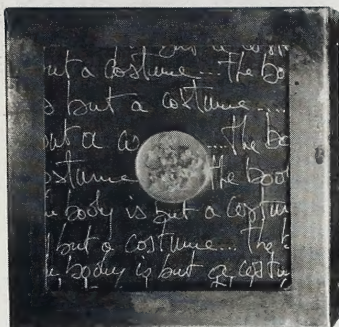 but a cost
but a costume... The bo
s but a costume....
but a co ...The bo
ostume The body
body is but a costum
but a costume... The b
body is but a costum